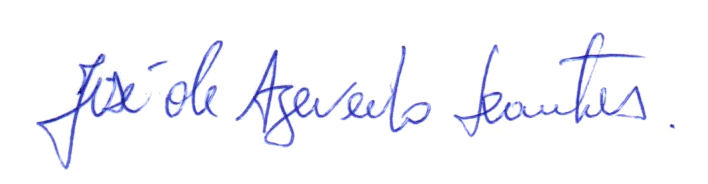 José de Azevedo Seautres.